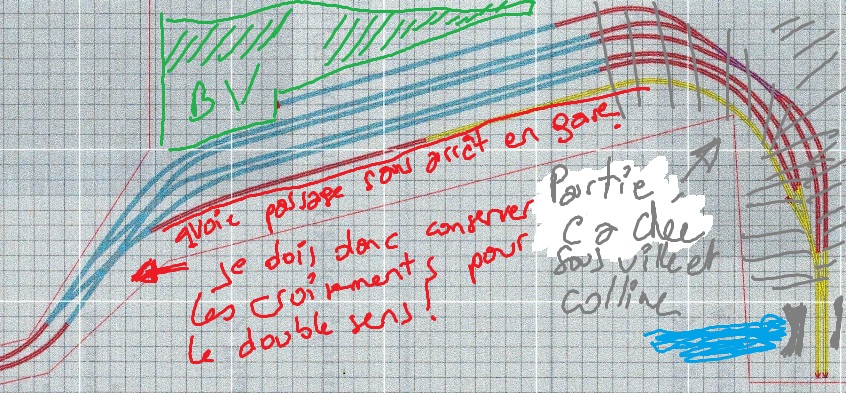 BV
1 voie passage sans arrêt en gare.
Je dois donc conserver
les croisements pour
le double sens !
Partie
cachée
sous ville et
colline